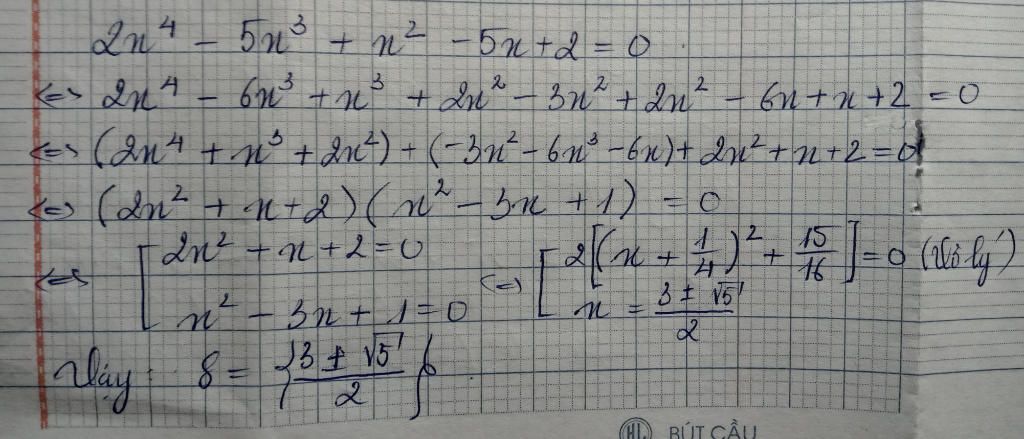 2x⁴ - 5x³ + x² - 5x + 2 = 0
<=> 2x⁴ - 6x³ + x³ + 2x² - 3x² + 2x² - 6x + x + 2 = 0
<=> (2x⁴ + x³ + 2x²) + (-3x² - 6x³ - 6x) + 2x² + x + 2 = 0
<=> (2x² + x + 2)(x² - 3x + 1) = 0
<=> [ 2x² + x + 2 = 0 <=> [ 2[(x + 1/4)² + 15/16] = 0 (Vô lý)
x² - 3x + 1 = 0 x = (3 ± √5)/2
Vậy: S = {(3 ± √5)/2}
HL BÚT CẦU